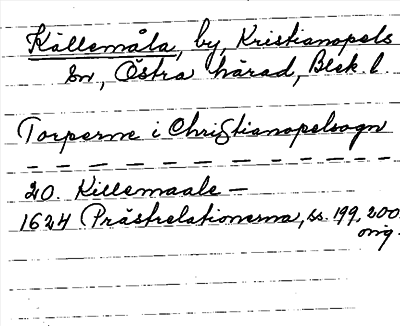 Källemåla, by, Kristianopels
sn, Östra härad, Blek. l.
Torperne i Christianopelsogn
— — — — — — — — — — — —
20. Killemaale —
1624 Prästrelationerna, ss. 199, 200.
orig.